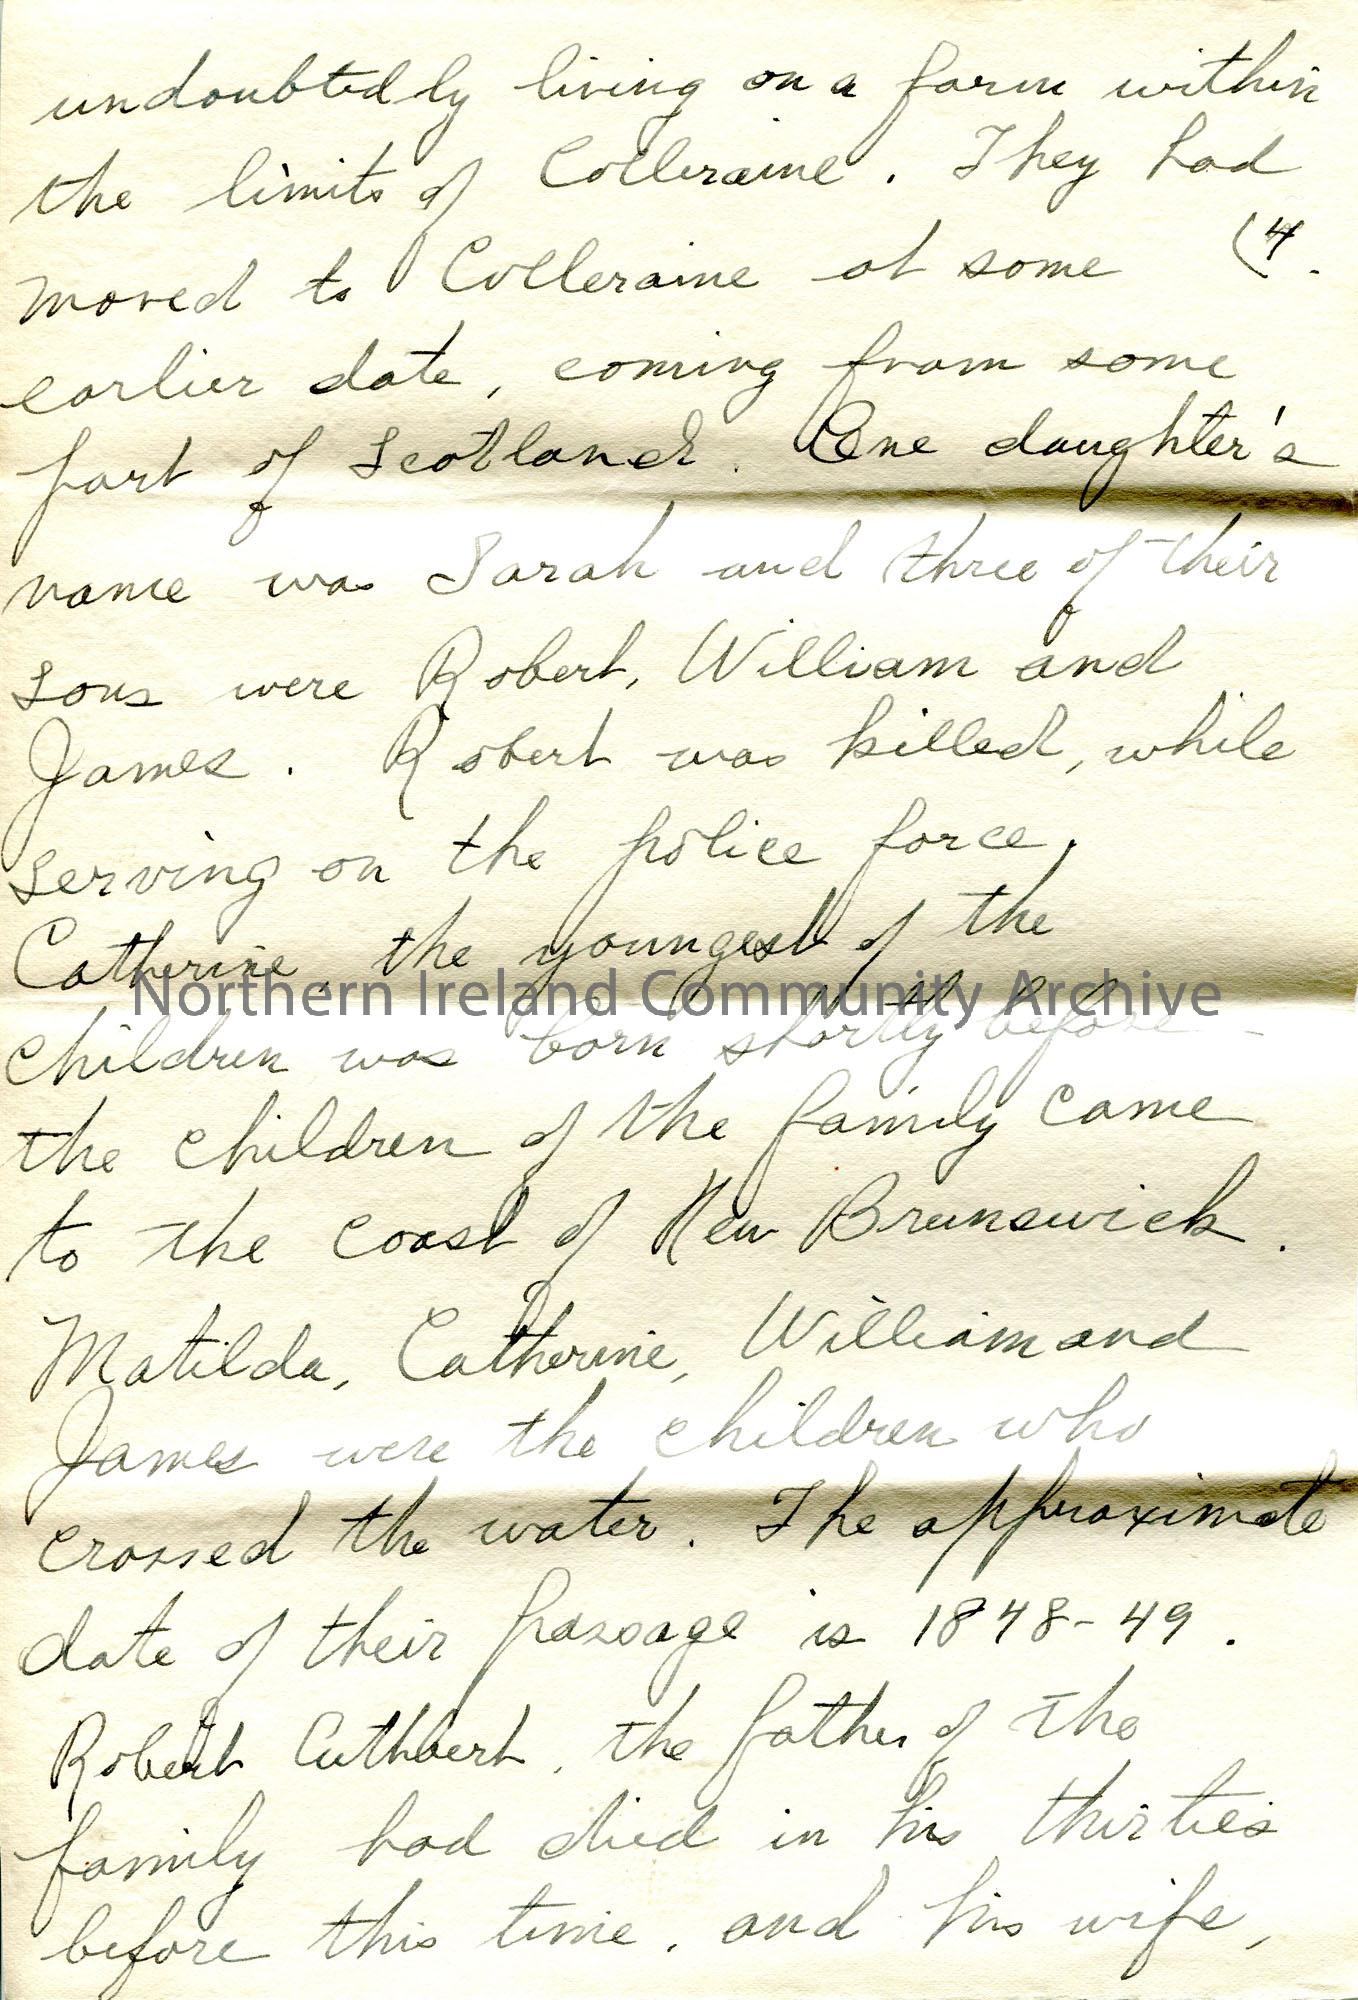 undoubtedly living on a farm within
the limits of Colleraine. They had
moved to Colleraine at some (4.
earlier date, coming from some
part of Scotland. One daughter's
name was Sarah and three of their
sons were Robert, William and
James. Robert was killed, while
serving on the police force.
Catherine, the youngest of the
Northern Ireland Community Archive
children was born shortly before -
the children of the family came
to the coast of New Brunswick.
Matilda, Catherine, William and
James were the children who
crossed the water. The approximate
date of their passage is 1848-49.
Robert Cuthbert, the father of the
family had died in his thirties
before this time, and his wife,